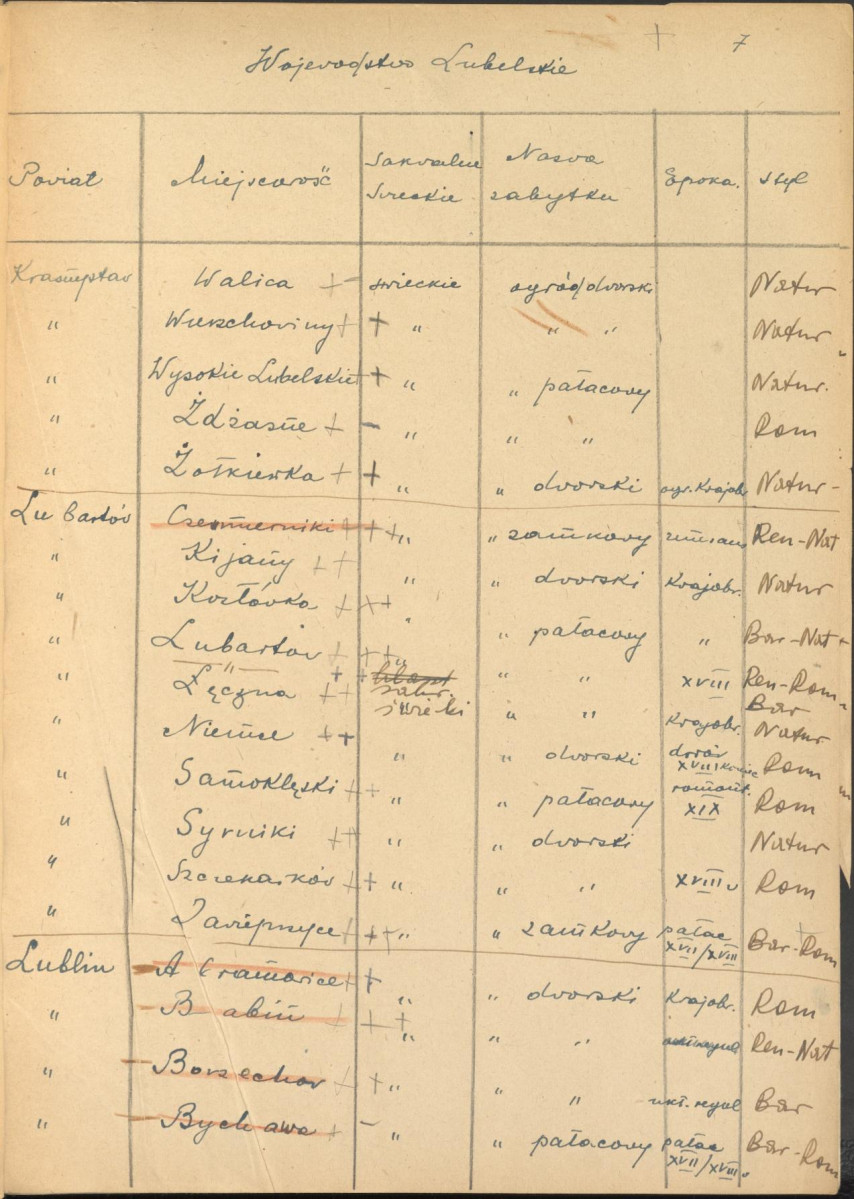 + 7
Wojevodstvo Lubelskie
Poviat Miejscovość Sakralne Svieckie Nasva zabytku Epoka. Styl
Krasnystav Walica + - svieckie ogród dvorski Natur
" Wierzchoviny + + " " " Natur
" Wysokie Lubelskie + + " " pałacovy Natur.
" Żdżasne + - " " " Rom
" Żółkievka + + " " dvorski ogr. Krajobr Natur -
Lubartóv Czemierniki + + + " " zamkovy Ren-Nat
" Kijany + + " " dvorski Krajobr. Natur
" Kozłóvka + + + " " pałacovy " Bar-Nat
" Lubartóv + + + " " " XVIII Ren-Rom-Bar
" Łęczna + + + + sakr. świecki " " Krajobr. Natur
" Niemce + + " " dvorski dvór XVIII koniec Rom
" Samoklęski + + " " pałacovy romant. XIX Rom
" Syrniki + + " " dvorski Natur
" Szczekarkóv + + " " " XVIII Rom
" Zavieprzyce + + + " " zamkovy pałac XVII/XVIII Bar-Rom
Lublin Abramovice + + " " dvorski Krajobr. Rom
" Babin + + + " " " Ren-Nat
" Borzechov + + " " " ukł. regul Bar
" Bychava + - " " pałacovy pałac XVII/XVIII Bar-Rom